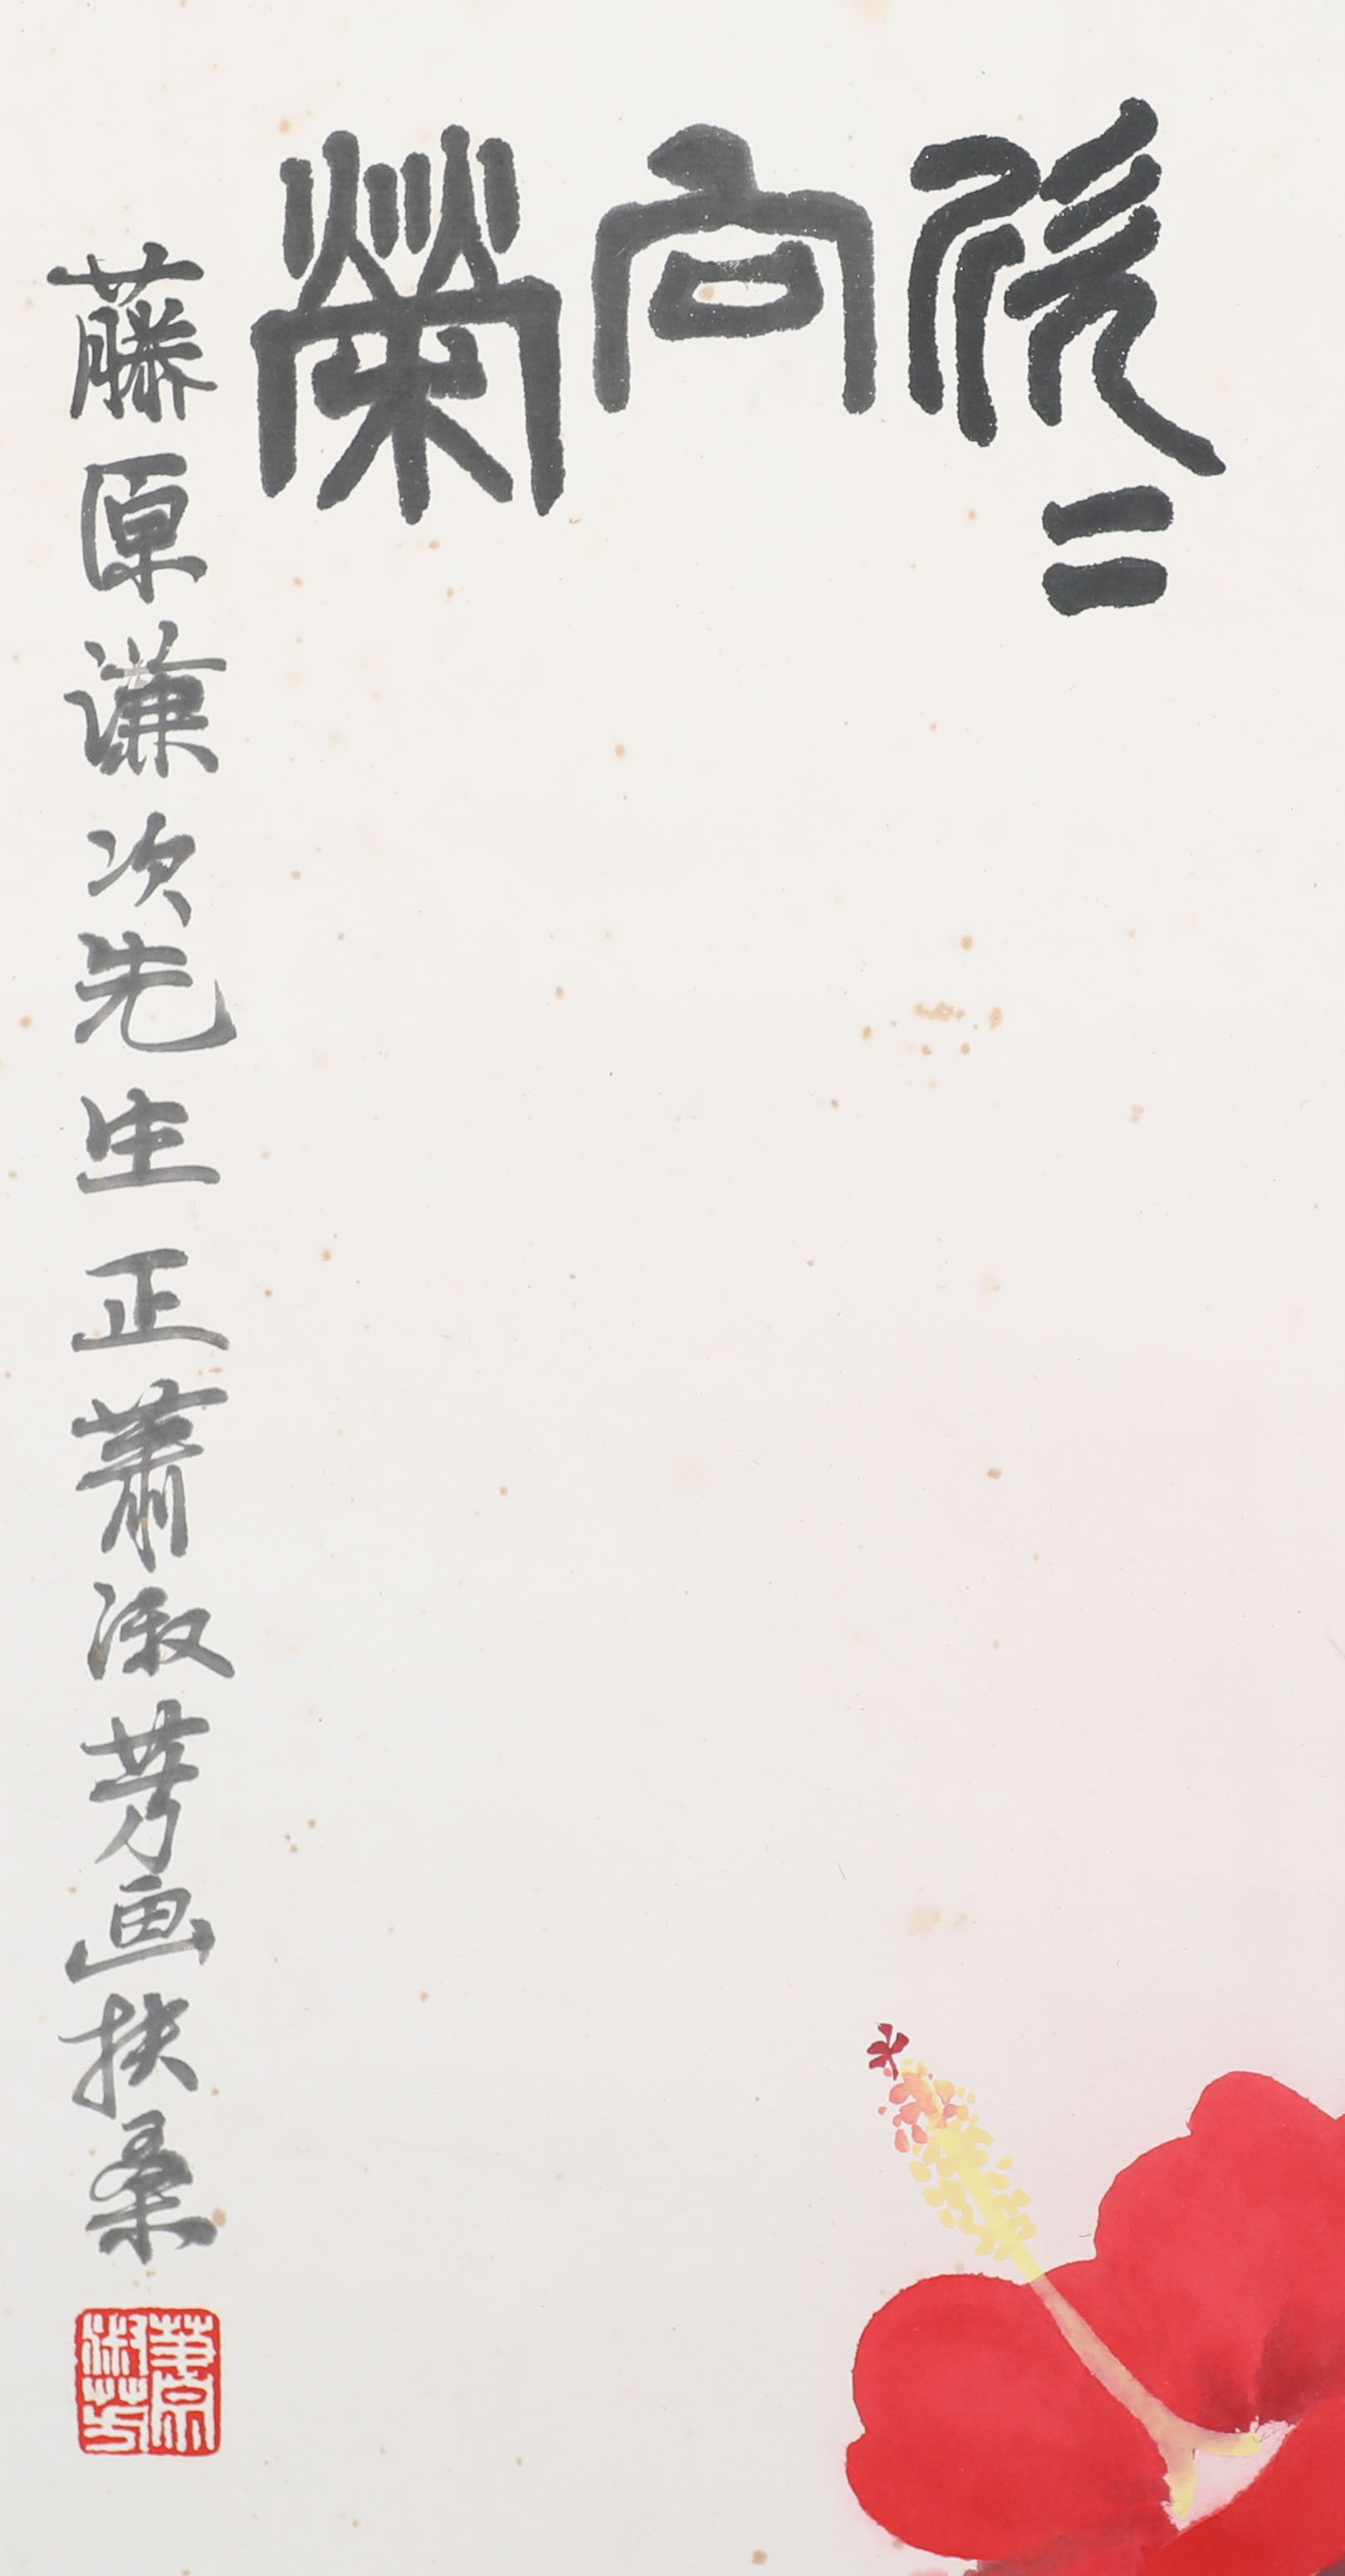 欣二向榮
藤原谦次先生正萧淑芳画扶桑
萧淑芳